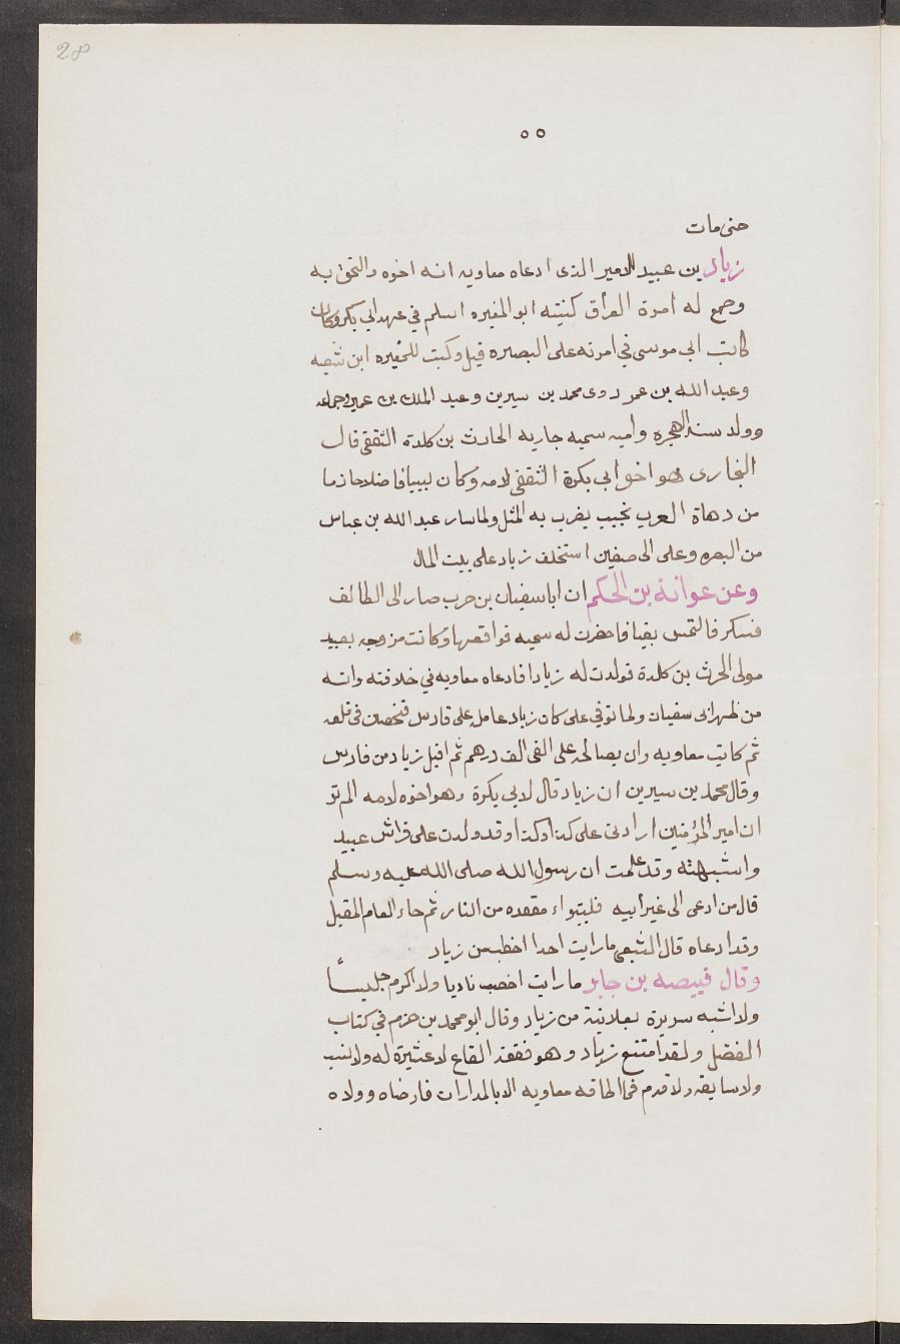 28
٥٥
حتى مات
زياد بن عبيد الامير الذى ادعاه معاويه انه اخوه والتحق به
وجمع له امرة العراق كنيته ابو المغيره اسلم في عهد ابي بكر وكان
كاتب ابي موسى في امرته على البصره قيل وكتب للمغيره ابن شعبه
وعبد الله بن عمر روى محمد بن سيرين وعبد الملك بن عمير وجماعه
وولد سنه الهجره وامه سميه جاريه الحارث بن كلدة الثقفى قال
البخارى هو اخو ابى بكرة الثقفى لامه وكان لبيبا فاضلا حازما
من دهاة العرب نجيب يضرب به المثل ولما سار عبد الله بن عباس
من البصره وعلى الى صفين استخلف زياد على بيت المال
وعن عوانة بن الحكم ان ابا سفيان بن حرب صار الى الطائف
فسكر فالتمس بغيا فاحضرت له سميه فواقعها وكانت مزوجه بعبيد
مولى الحرث بن كلدة فولدت له زيادا فادعاه معاويه في خلافته وانه
من ظهر ابى سفيان ولما توفي على كان زياد عامله على فارس فتحصن فى قلعه
ثم كاتب معاويه وان يصالحه على الفى الف درهم ثم اقبل زياد من فارس
وقال محمد بن سيرين ان زياد قال لابى بكرة وهو اخوه لامه الم تر
ان امير المؤمنين ارادنى على كذا وكذا وقد ولدت على فراش عبيد
واشبهته وقد علمت ان رسول الله صلى الله عليه وسلم
قال من ادعى الى غير ابيه فليتبواء مقعده من النار ثم جاء العام المقبل
وقد ادعاه قال الشعبى ما رايت احدا اخطب من زياد
وقال قبيصه بن جابر ما رايت اخصب ناديا ولا اكرم جليساً
ولا اشبه سريرة بعلانية من زياد وقال ابو محمد بن حزم في كتاب
الفصل ولقد امتنع زياد وهو فقعة القاع لا عشيرة له ولا نسب
ولا سابقه ولا قدم فما اطاقه معاويه الا بالمدارات فارضاه وولاه